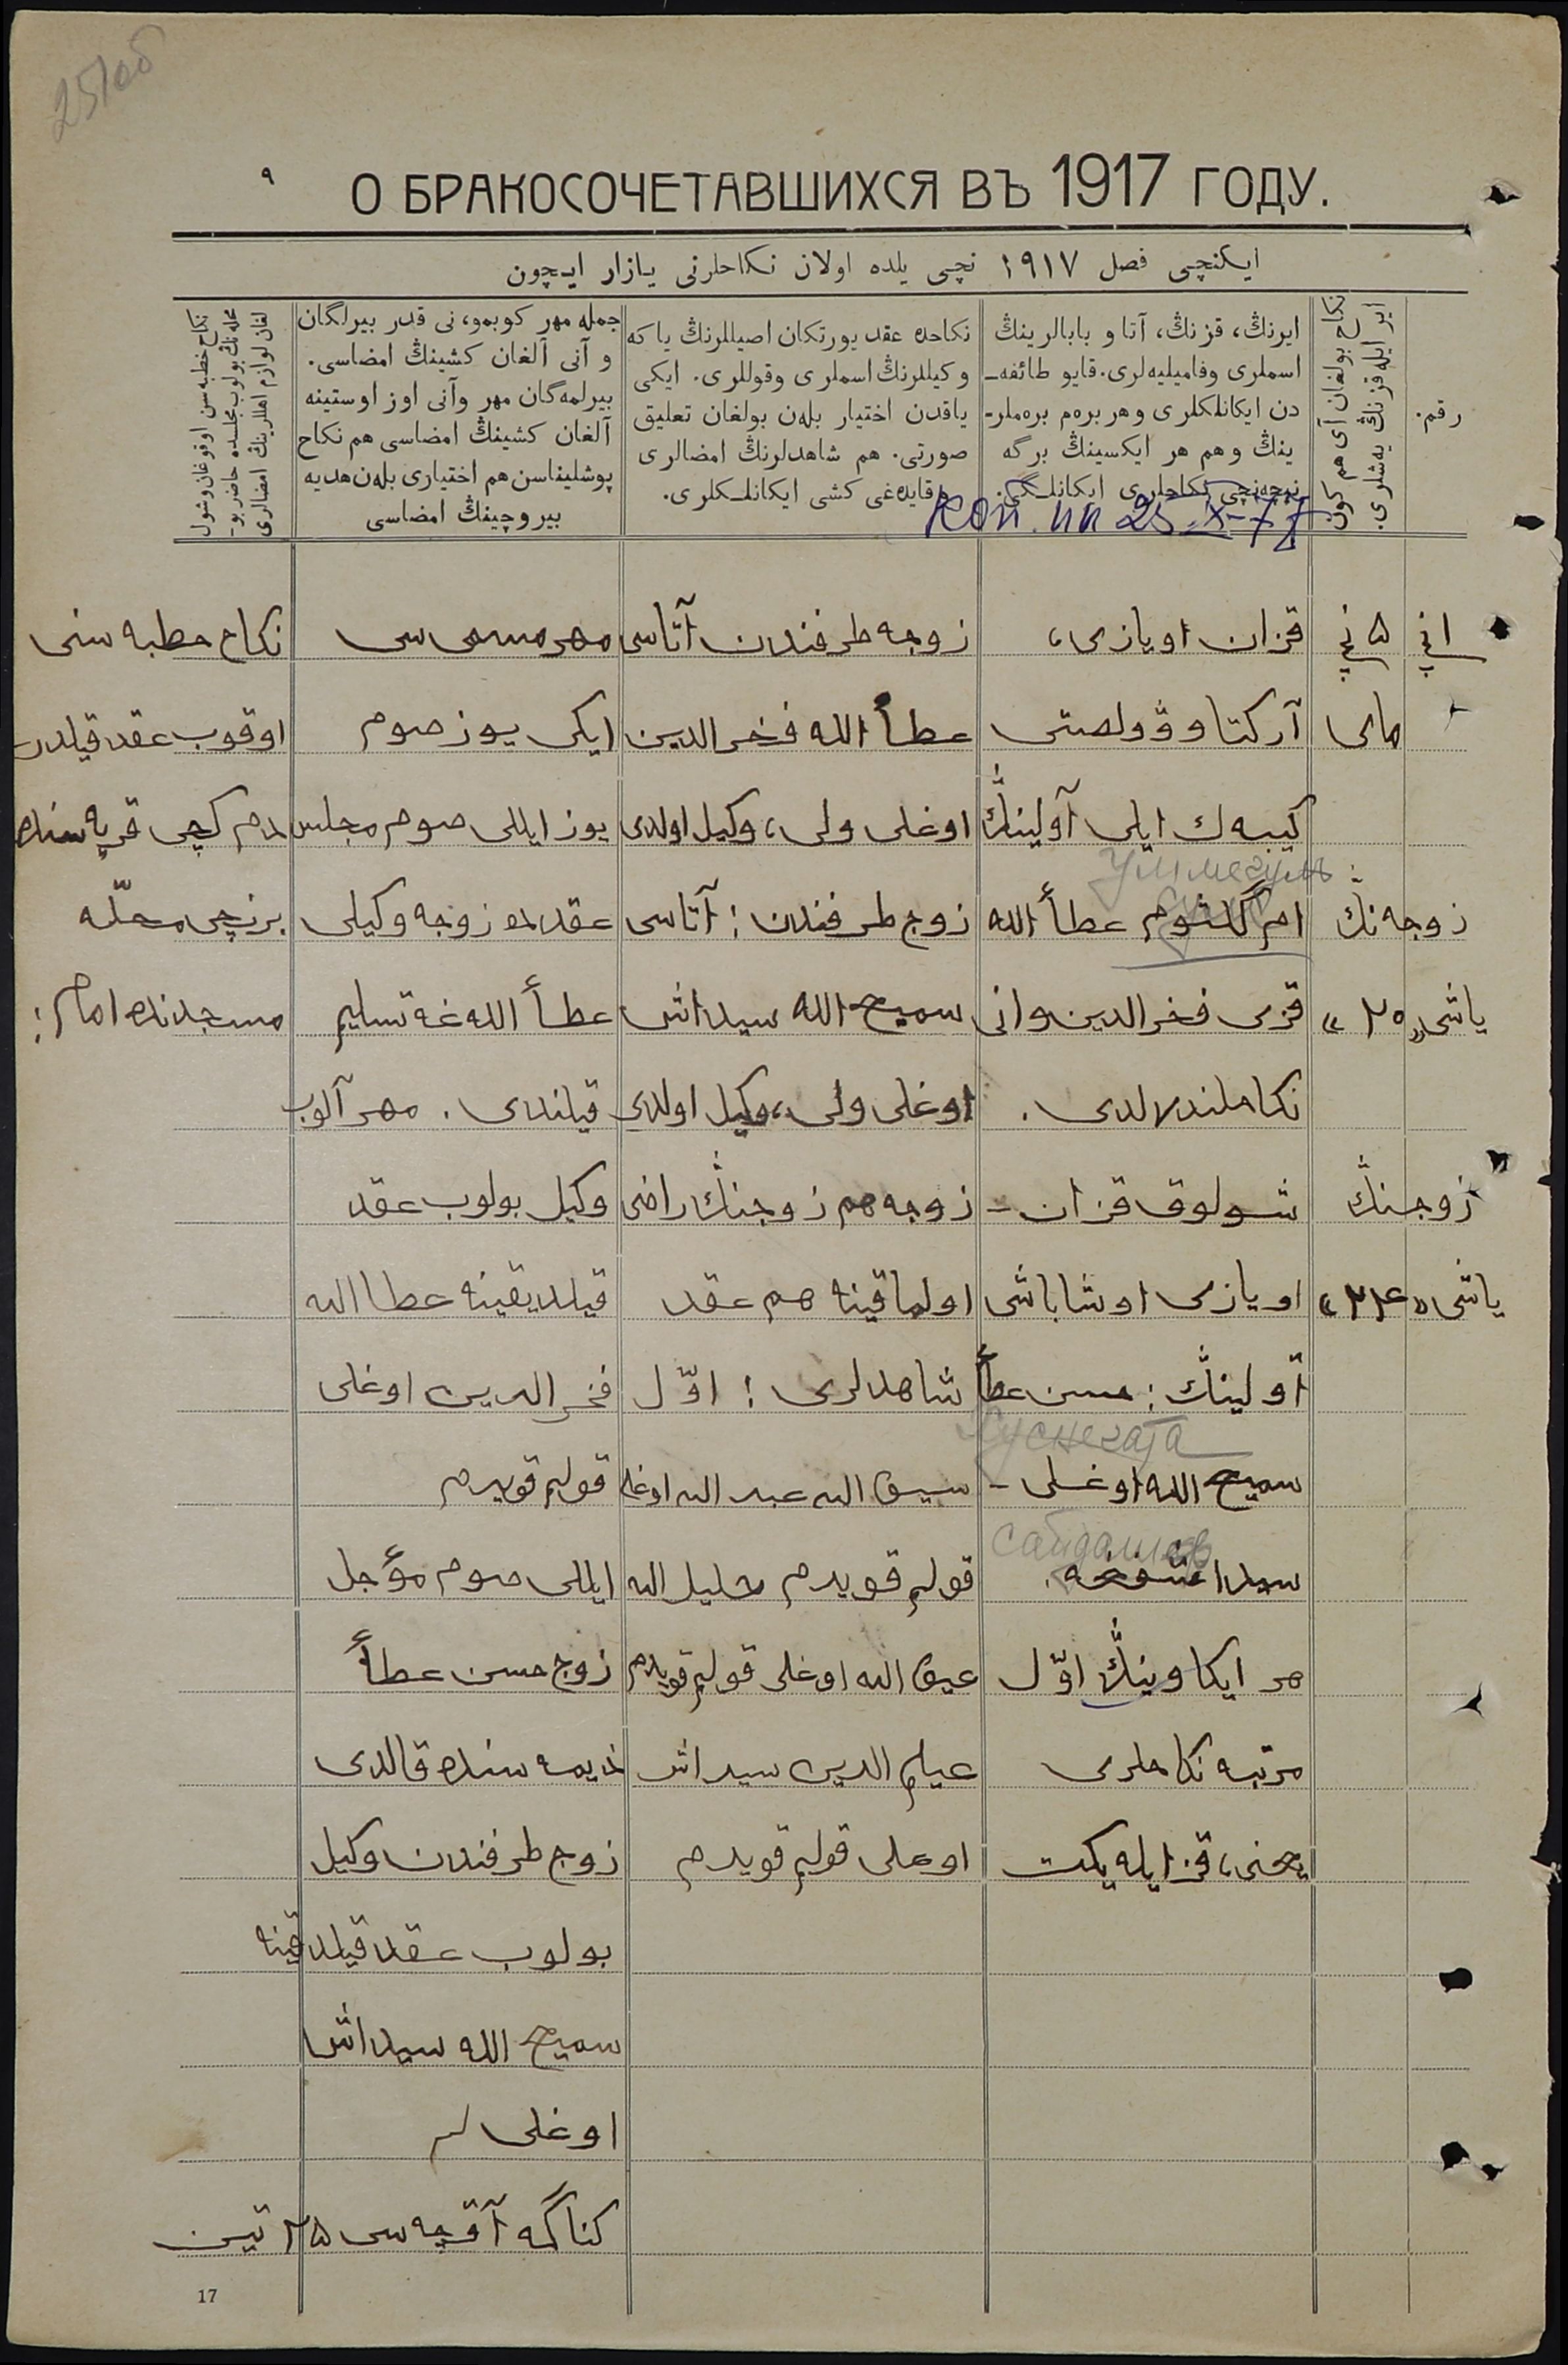 25/об
٩
О БРАКОСОЧЕТАВШИХСЯ ВЪ 1917 ГОДУ.
ايكنچی فصل ١٩١٧ نچی یلده اولان نكاحلرنی یازار ایچون
رقم.
نكاح بولغان آی هم كون
ایر ایله قزنڭ یه‌شلری.
ایرنڭ، قزنڭ، آتا و بابالرینڭ
اسملری وفامیلیه‌لری. قایو طائفه‌ـ
دن ایكانلكلری و هر بره‌م بره‌ملرـ
ینڭ و هم هر ایكسینڭ برگه
نیچه‌نچی نكاحلری ایكانلـگی.
نكاحده عقد یورتكان اصیللرنڭ یا كه
وكیللرنڭ اسملری وقوللری. ایكی
یاقدن اختیار بله‌ن بولغان تعلیق
صورتی. هم شاهدلرنڭ امضالری
و قایده‌غی كشی ایكانلـكلری.
جمله مهر كوبمو، نی قدر بیرلگان
و آنی آلغان كشینڭ امضاسی.
بیرلمه‌گان مهر وآنی اوز اوستینه
آلغان كشینڭ امضاسی هم نكاح
پوشلیناسن هم اختیاری بله‌ن هدیه
بیروچینڭ امضاسی
نكاح خطبه‌سن اوقوغان وشول
محله‌نڭ بولوب مجلسده حاضر بوـ
لغان لوازم اهللرینڭ امضالری
Коп. ип 25-X-77
١نچی
٥نچی
مای
زوجه‌نڭ
یاشی «٢٠»
زوجنڭ
یاشی «٢٤»
قزان اویازی،
آركتاو وولصتی
كیبه‌ك ایلی آولینڭ
Уммегуль
ام گلثوم عطأ الله
قزی فخرالدین وانی
نكاحلندرلدی.
شولوق قزان ـ
اویازی اوشاباشی
آولینڭ: حسن عطأ
Хуснегата
سمیح الله اوغلی ـ
Сайдашев
هر ایكاوینڭ اوّل
مرتبه نكاحلری
یعنی، قز ایله یكت
زوجه طرفندن آتاسی
عطأ الله فخرالدین
اوغلی ولی، وكیل اولدی
زوج طرفندن: آتاسی
سمیح الله سیداش
اوغلی ولی، وكیل اولدی
زوجه هم زوجنڭ راضی
اولماقینه هم عقد
شاهدلری: اوّل
عبد الله اوغلی
قولم قویدم خلیل الله
الله اوغلی قولم قویدم
علیم الدین سیداش
اوغلی قولم قویدم
مهر مسمی سی
ایكی یوز صوم
یوز ایللی صوم مجلس
عقدده زوجه وكیلی
عطأ الله غه تسلیم
قیلندی. مهر آلوب
وكیل بولوب عقد
قیلدیقینه عطا الله
فخر الدین اوغلی
قولم قویدم
ایللی صوم مؤجل
زوج حسن عطأ
ذیمه سنده قالدی
زوج طرفندن وكیل
بولوب عقد قیلدقینه
سمیح الله سیداش
اوغلی
كناگه آقچه سی ٢٥ تین
نكاح خطبه سنی
اوقوب عقد قیلدر
كچی قریه سنده
برنچی محلّه
مسجدنده امام:
17